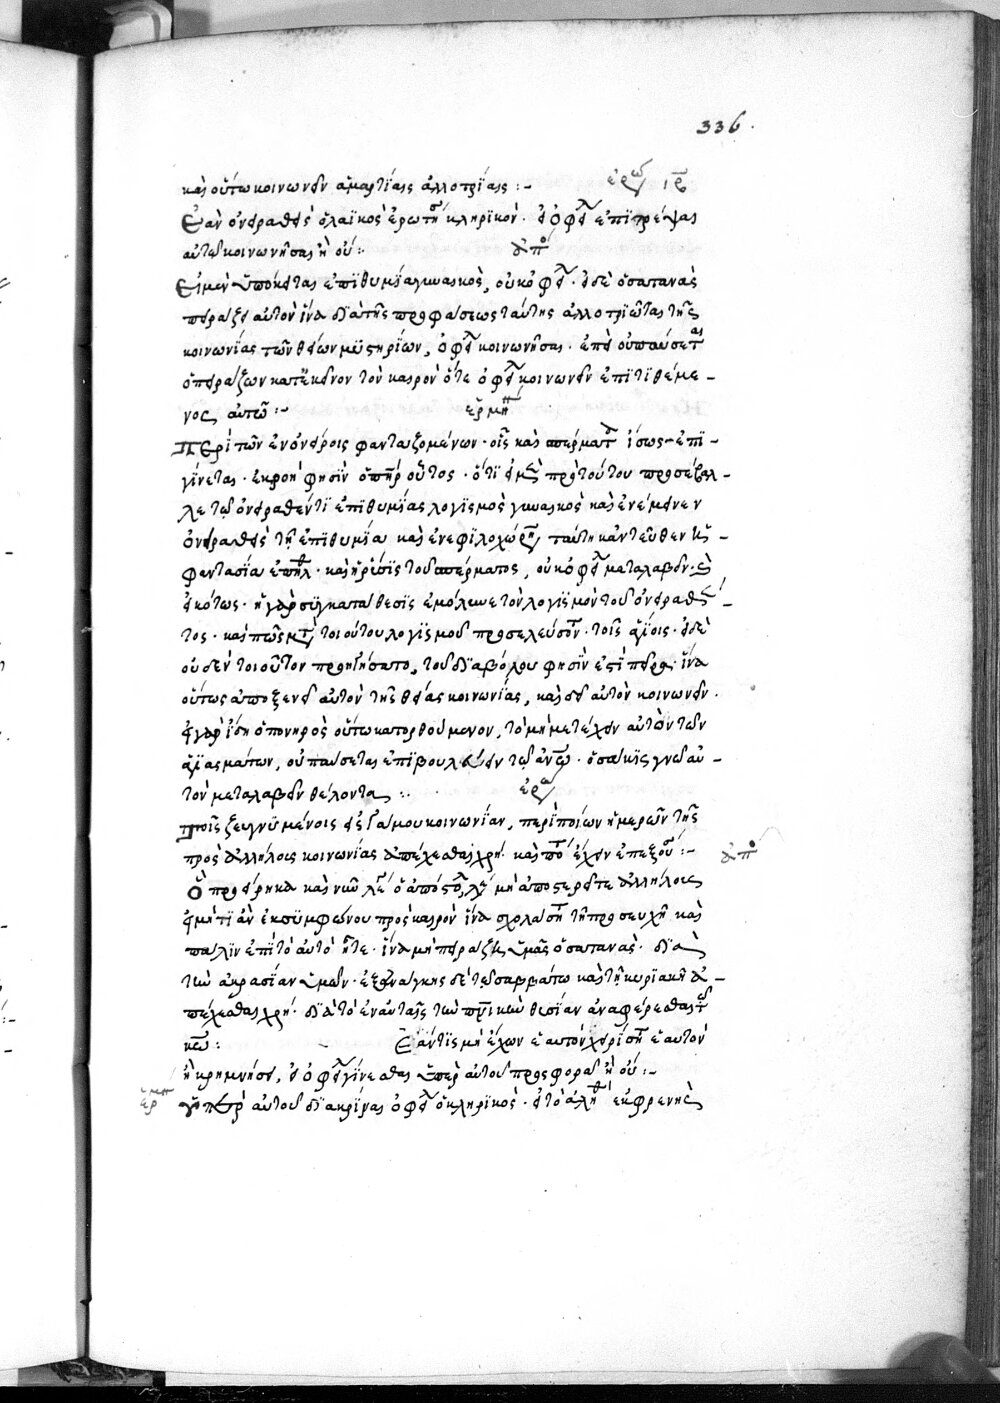 336.
καὶ οὕτω κοινωνεῖν ἁμαρτίαις ἀλλοτρίαις :- ἐρώ ιβ
Ἐὰν ὀνειρασθεὶς ὁ λαϊκὸς ἐρωτήσῃ κληρικὸν· εἰ ὀφείλει ἐπιτρέψαι
αὐτῷ κοινωνῆσαι ἢ οὔ :- ἀπό
Εἰ μὲν ὑπόκειται ἐπιθυμία γυναικὸς, οὐκ ὀφείλει· εἰ δὲ ὁ σατανᾶς
πειράζει αὐτὸν ἵνα διὰ τῆς προφάσεως ταύτης ἀλλοτριῶται τῆς
κοινωνίας τῶν θείων μυστηρίων, ὀφείλει κοινωνῆσαι· ἐπεὶ οὐ παύσεται
ὁ πειράζων κατ' ἐκεῖνον τὸν καιρὸν ὅτε ὀφείλει κοινωνεῖν ἐπιτιθέμε-
νος αὐτῷ :- ἑρμη
Περὶ τῶν ἐν ὀνείροις φανταζομένων· οἷς καὶ σπέρματος ἴσως ἐπι-
γίνεται ἐκροή φησὶν ὁ πατὴρ οὗτος· ὅτι εἰ μὲν πρὸ τούτου προσέβαλ-
λε τῷ ὀνειρασθέντι ἐπιθυμίας λογισμὸς γυναικὸς καὶ ἐνέμεινεν
ὀνειρασθεὶς τῇ ἐπιθυμία καὶ ἐνεφιλοχώρησε ταύτῃ κἀντεῦθεν ἡ
φαντασία ἐπῆλθε· καὶ ἡ ῥύσις τοῦ σπέρματος, οὐκ ὀφείλει μεταλαβεῖν·
εἰκότως· ἡ γὰρ συγκατάθεσις ἐμόλυνε τὸν λογισμὸν τοῦ ὀνειρασθέν-
τος· καὶ πῶς μετὰ τοιούτου λογισμοῦ προσελεύσεται τοῖς ἁγίοις· εἰ δὲ
οὐδὲν τοιοῦτον προηγήσατο, τοῦ διαβόλου φησὶν ἐστὶ πεῖρα· ἵνα
οὕτως ἀποξενοῖ αὐτὸν τῆς θείας κοινωνίας, καὶ δεῖ αὐτὸν κοινωνεῖν·
εἰ γὰρ ἴδῃ ὁ πονηρὸς οὕτω κατορθούμενον, τὸ μὴ μετέχειν αὐτὸν τῶν
ἁγιασμάτων, οὐ παύσεται ἐπιβουλεύειν τῷ ἀνθρώπῳ· ὁσάκις γνῶ αὐ-
τὸν μεταλαβεῖν θέλοντα :· ἐρώ
Τοῖς ζευγνυμένοις εἰς γάμου κοινωνίαν, περὶ ποίων ἡμερῶν τῆς
πρὸς ἀλλήλους κοινωνίας ἀπέχεσθαι χρὴ καὶ ποίας ἔχειν ἐπ' ἐξουσίας :- ἀπό
Ὃ προείρηκα καὶ νῦν λέγω ὁ ἀπόστολος λέγει μὴ ἀποστερεῖτε ἀλλήλους
εἰ μήτι ἂν ἐκ συμφώνου πρὸς καιρὸν ἵνα σχολάσητε τῇ προσευχῇ καὶ
πάλιν ἐπὶ τὸ αὐτὸ ἦτε· ἵνα μὴ πειράζῃ ὑμᾶς ὁ σατανᾶς· διὰ
τὴν ἀκρασίαν ὑμῶν· ἐξ ἀνάγκης δὲ τῷ σαββάτω καὶ τῇ κυριακῇ ἀ-
πέχεσθαι χρή· διὰ τὸ ἐν αὐταῖς τὴν πνικὴν θυσίαν ἀναφέρεσθαι τῷ
κῶ : - Ἐάν τις μὴ ἔχων ἑαυτὸν χειρίσῃ ἑαυτὸν
ἢ κρημνήσει, εἰ ὀφείλει γίνεσθαι ὑπὲρ αὐτοῦ προσφορὰ ἢ οὔ :-
ἑρμη Ὑπὲρ αὐτοῦ διακρῖναι ὀφείλει ὁ κληρικὸς· εἰ τὸ ἀληθὲς ἐκφρενὴς